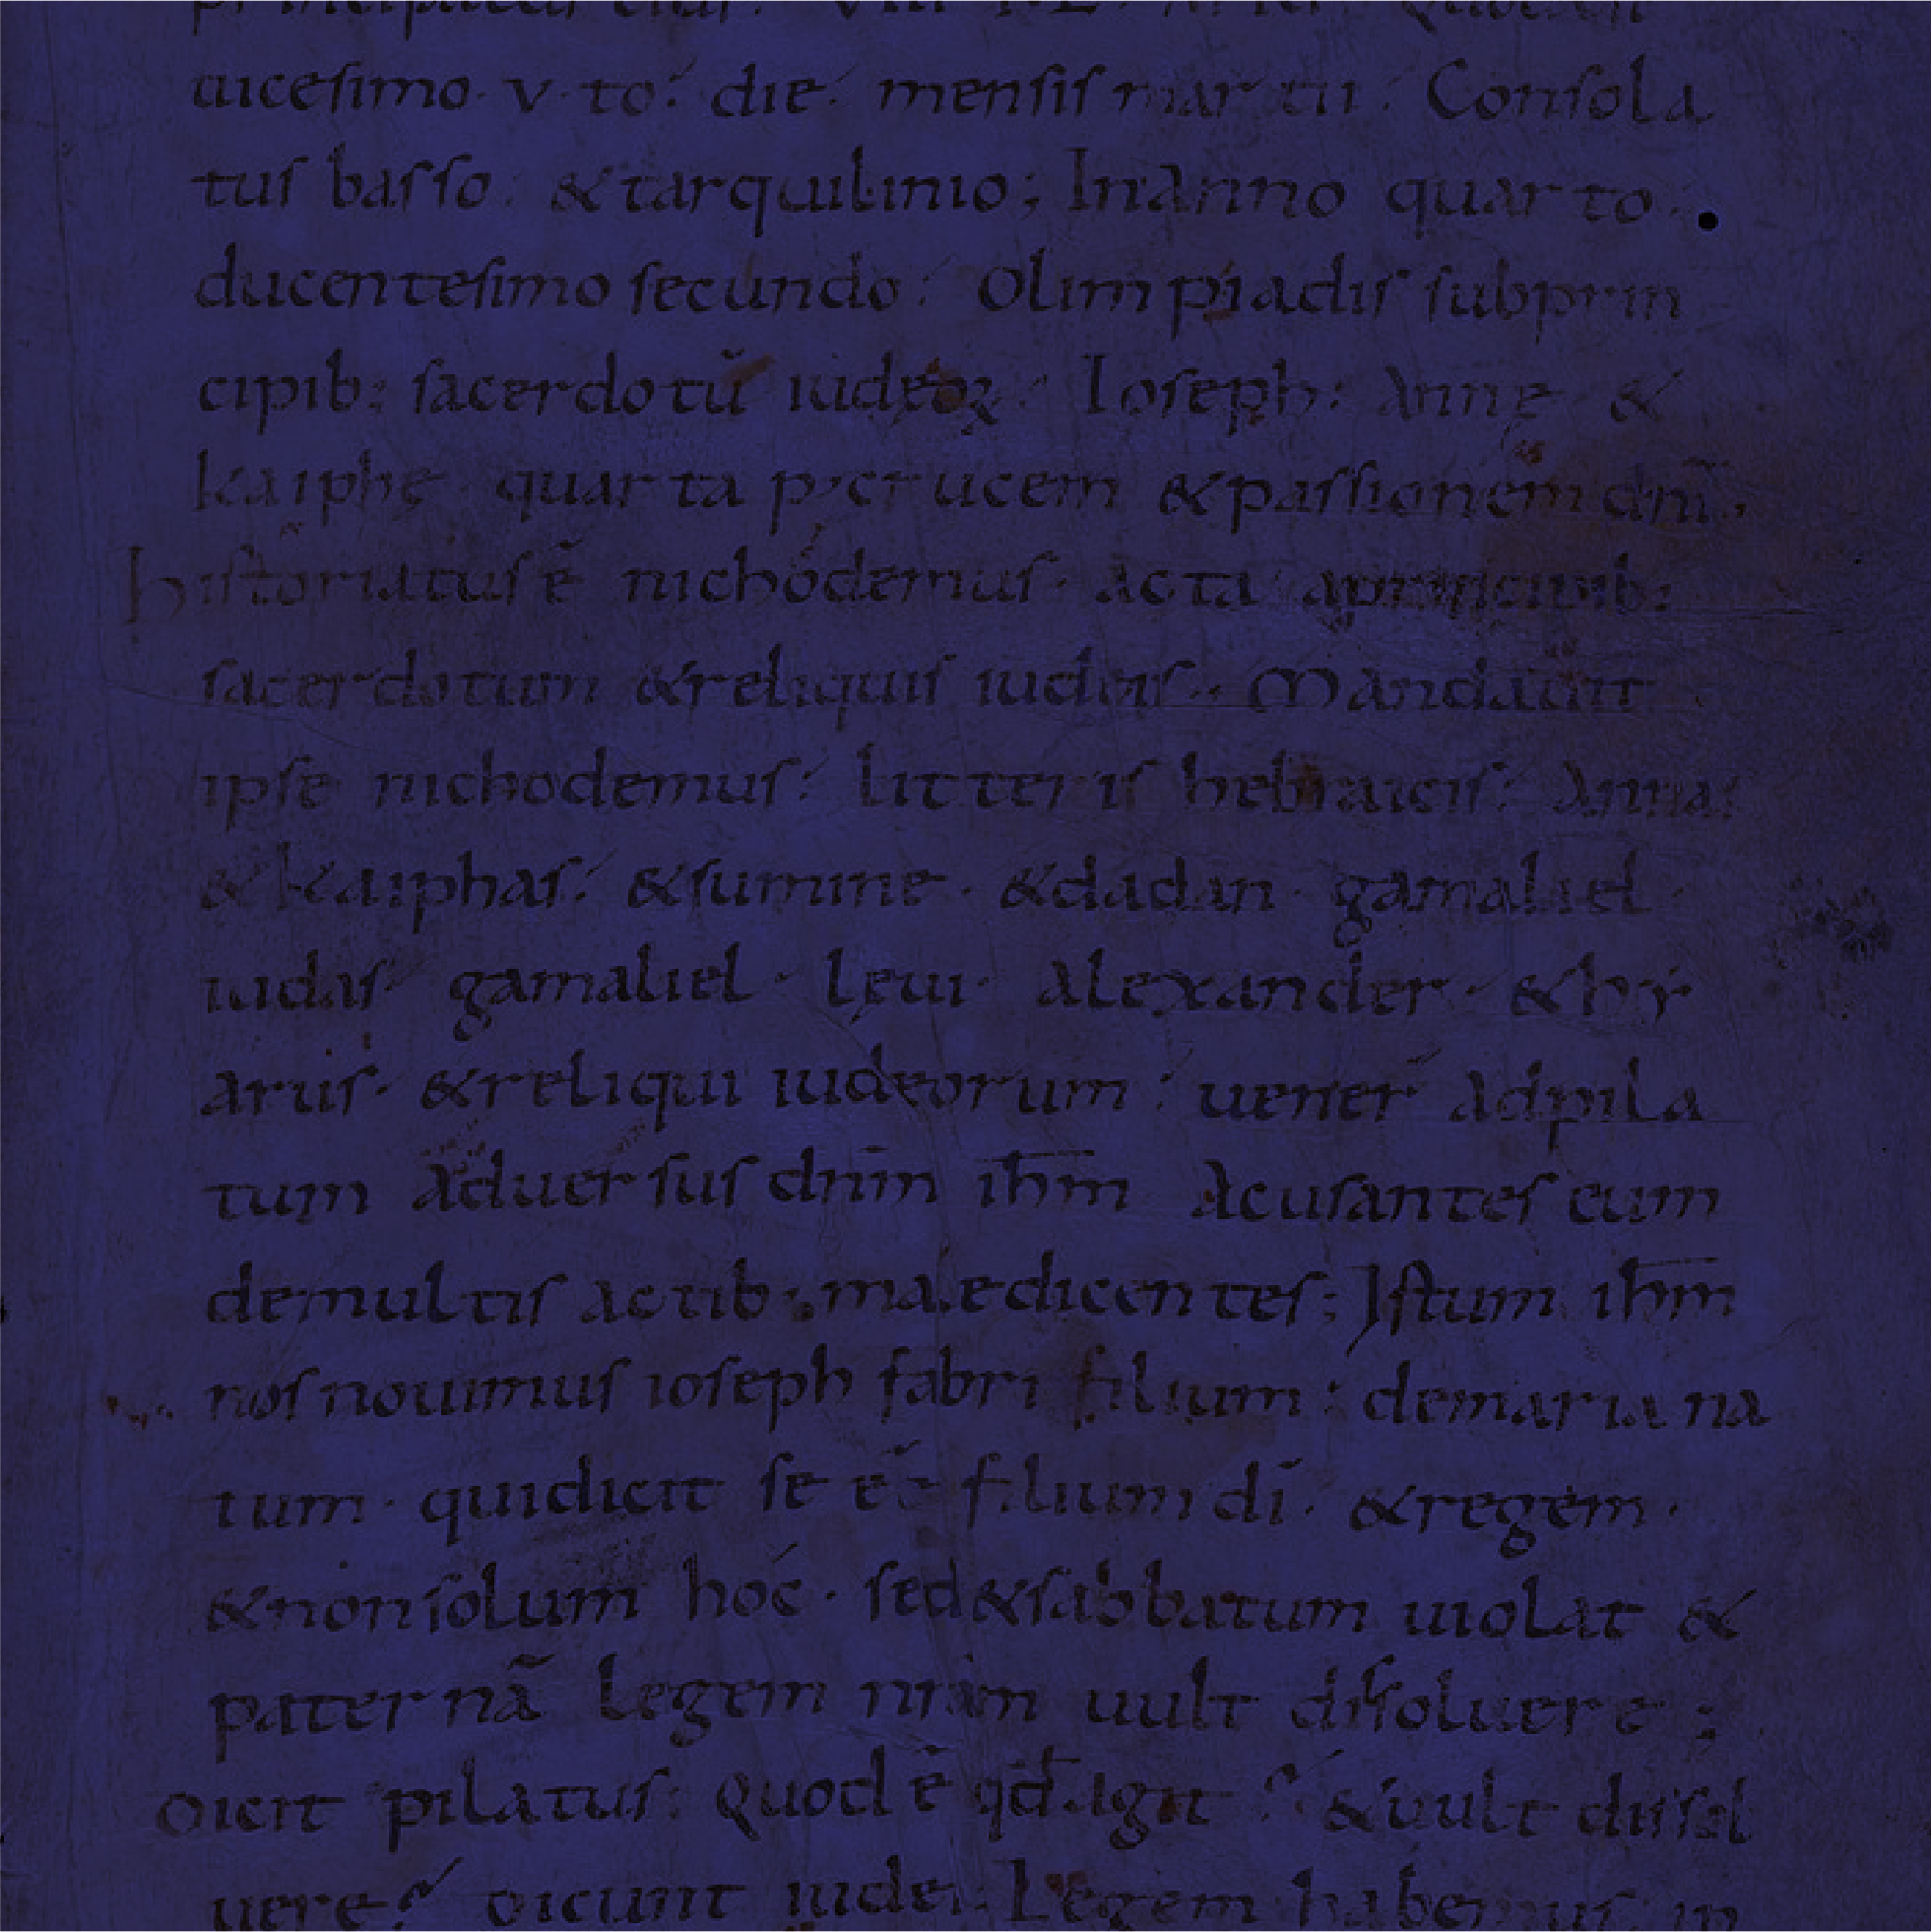 principatus eius. VIII KL. Quod est
uicesimo. v. to. die. mensis martii. Consola
tus basso. & tarquilinio; In anno quarto.
ducentesimo secundo. Olimpiadis sub prin
cipib: sacerdotū iudęoꝝ. Ioseph: Annę &
kaiphę. quarta p crucem & passionem dnī.
historiatus ē nichodemus. acta a principib:
sacerdotum & reliquis iudeis. Mandauit
ipse nichodemus. litteris hebraicis. Annas
& kaiphas. & sumine. & dadan. gamaliel.
iudas. gamaliel. leui. alexander. & hy
arus. & reliqui iudeorum. uener ad pila
tum aduersus dnm ihm acusantes eum
de multis actib: maledicentes; Istum ihm
nos nouimus ioseph fabri filium: de maria na
tum. qui dicit se ēē filium di. & regem.
& non solum hoc. sed & sabbatum uiolat &
paternā legem nram uult dissoluere;
Dicit pilatus: Quod ē qd agit? & uult dissol
uere? Dicunt iudei. Legem habemus in